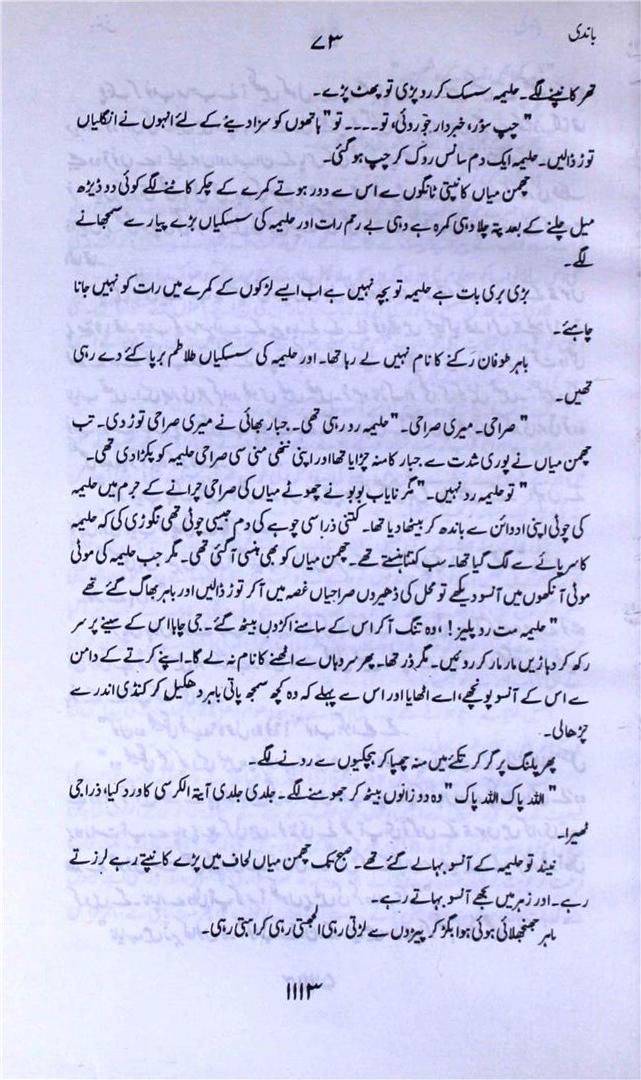 باندی
۷۳
تھر کانپنے لگے۔ حلیمہ سسک کر رو پڑی تو پھٹ پڑے۔
"چپ سؤر، خبردار جو روئی، تو۔۔۔۔ تو" ہاتھوں کو سزا دینے کے لئے انہوں نے انگلیاں
توڑ ڈالیں۔ حلیمہ ایک دم سانس روک کر چپ ہو گئی۔
چھمن میاں کانپتی ٹانگوں سے اس سے دور ہوتے کمرے کے چکر کاٹنے لگے کوئی دو ڈیڑھ
میل چلنے کے بعد پتہ چلا وہی کمرہ ہے وہی بے رحم رات اور حلیمہ کی سسکیاں بڑے پیار سے سمجھانے
لگے۔
بڑی بری بات ہے حلیمہ تو بچہ نہیں ہے اب ایسے لڑکوں کے کمرے میں رات کو نہیں جانا
چاہیئے۔
باہر طوفان رکنے کا نام نہیں لے رہا تھا۔ اور حلیمہ کی سسکیاں طلاطم برپا کئے دے رہی
تھیں۔
"صراحی۔ میری صراحی۔" حلیمہ رو رہی تھی۔ جبار بھائی نے میری صراحی توڑ دی۔ تب
چھمن میاں نے پوری شدت سے جبار کا منہ چڑایا تھا اور اپنی ننھی منی سی صراحی حلیمہ کو پکڑا دی تھی۔
"تو حلیمہ رو نہیں۔" مگر نایاب بوبو نے چھوٹے میاں کی صراحی چرانے کے جرم میں حلیمہ
کی چوٹی اپنی ادوائن سے باندھ کر بیٹھا دیا تھا۔ کتنی ذرا سی چوہے کی دم جیسی چوٹی تھی نگوڑی کی کہ حلیمہ
کا سر پائے سے لگ گیا تھا۔ سب کتنا ہنستے تھے۔ چھمن میاں کو بھی ہنسی آ گئی تھی۔ مگر جب حلیمہ کی موٹی
موٹی آنکھوں میں آنسو دیکھے تو محل کی ڈھیروں صراحیاں غصہ میں آ کر توڑ ڈالیں اور باہر بھاگ گئے تھے
"حلیمہ مت رو پلیز!، وہ تنگ آ کر اس کے سامنے اکڑوں بیٹھ گئے۔ جی چاہا اس کے سینے پر سر
رکھ کر دہاڑیں مار مار کر روئیں۔ مگر ڈر تھا۔ پھر سر دہاں سے اٹھنے کا نام نہ لے گا۔ اپنے کرتے کے دامن
سے اس کے آنسو پونچھے، اسے اٹھایا اور اس سے پہلے کہ وہ کچھ سمجھ پاتی باہر دھکیل کر کنڈی اندر سے
چڑھا لی۔
پھر پلنگ پر گر کر تکئے میں منہ چھپا کر ہچکیوں سے رونے لگے۔
"اللہ پاک اللہ پاک" وہ دو زانوں بیٹھ کر جھومنے لگے۔ جلدی جلدی آیتہ الکرسی کا ورد کیا، ذرا جی
ٹھیرا۔
نیند تو حلیمہ کے آنسو بہا لے گئے تھے۔ صبح تک چھمن میاں لحاف میں پڑے کانپتے رہے لرزتے
رہے۔ اور زہر میں بجھے آنسو بہاتے رہے۔
باہر جھنجھلائی ہوئی ہوا بگڑ کر پیڑوں سے لڑتی رہی الجھتی رہی کراہتی رہی۔
۱۱۱۳